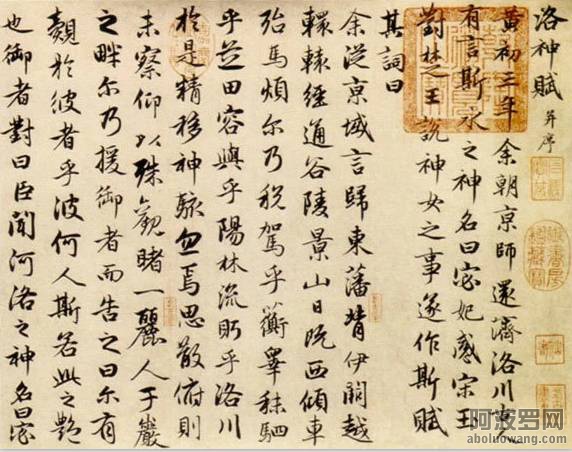 洛神賦 并序
黃初三年余朝京師還濟洛川
有言斯水之神名曰宓妃感宋玉
對楚王說神女之事遂作斯賦
其詞曰
余從京域言歸東藩背伊闕越
轘轅經通谷陵景山日既西傾車
殆馬煩尔乃稅駕乎蘅皋秣駟
乎芝田容與乎陽林流眄乎洛川
於是精移神駭忽焉思散俯則
未察仰以殊觀睹一麗人于巖
之畔尔乃援御者而告之曰尔有
覿於彼者乎彼何人斯若此之艷
也御者對曰臣聞河洛之神名曰宓
阿波罗网
aboluowang.com